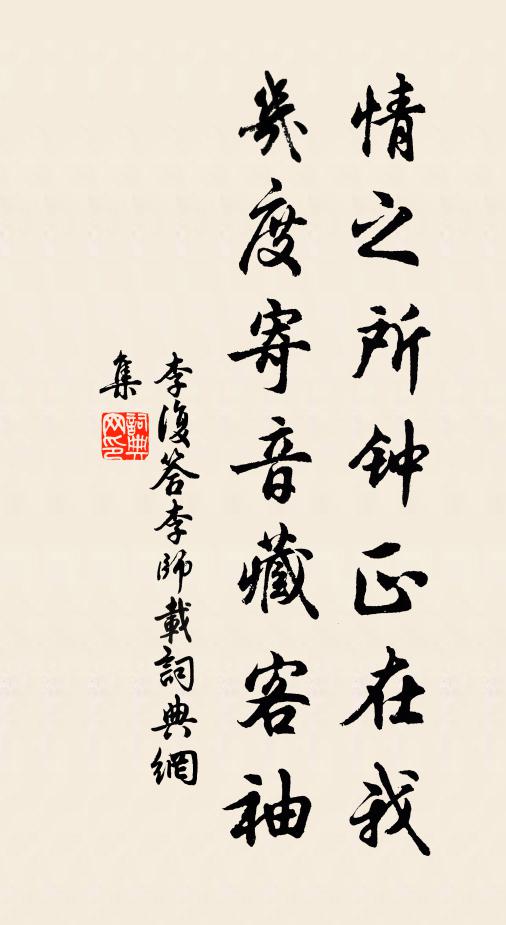 情之所钟正在我
幾度寄音藏客袖
李復答李師載詞典網
集
詞典
网印